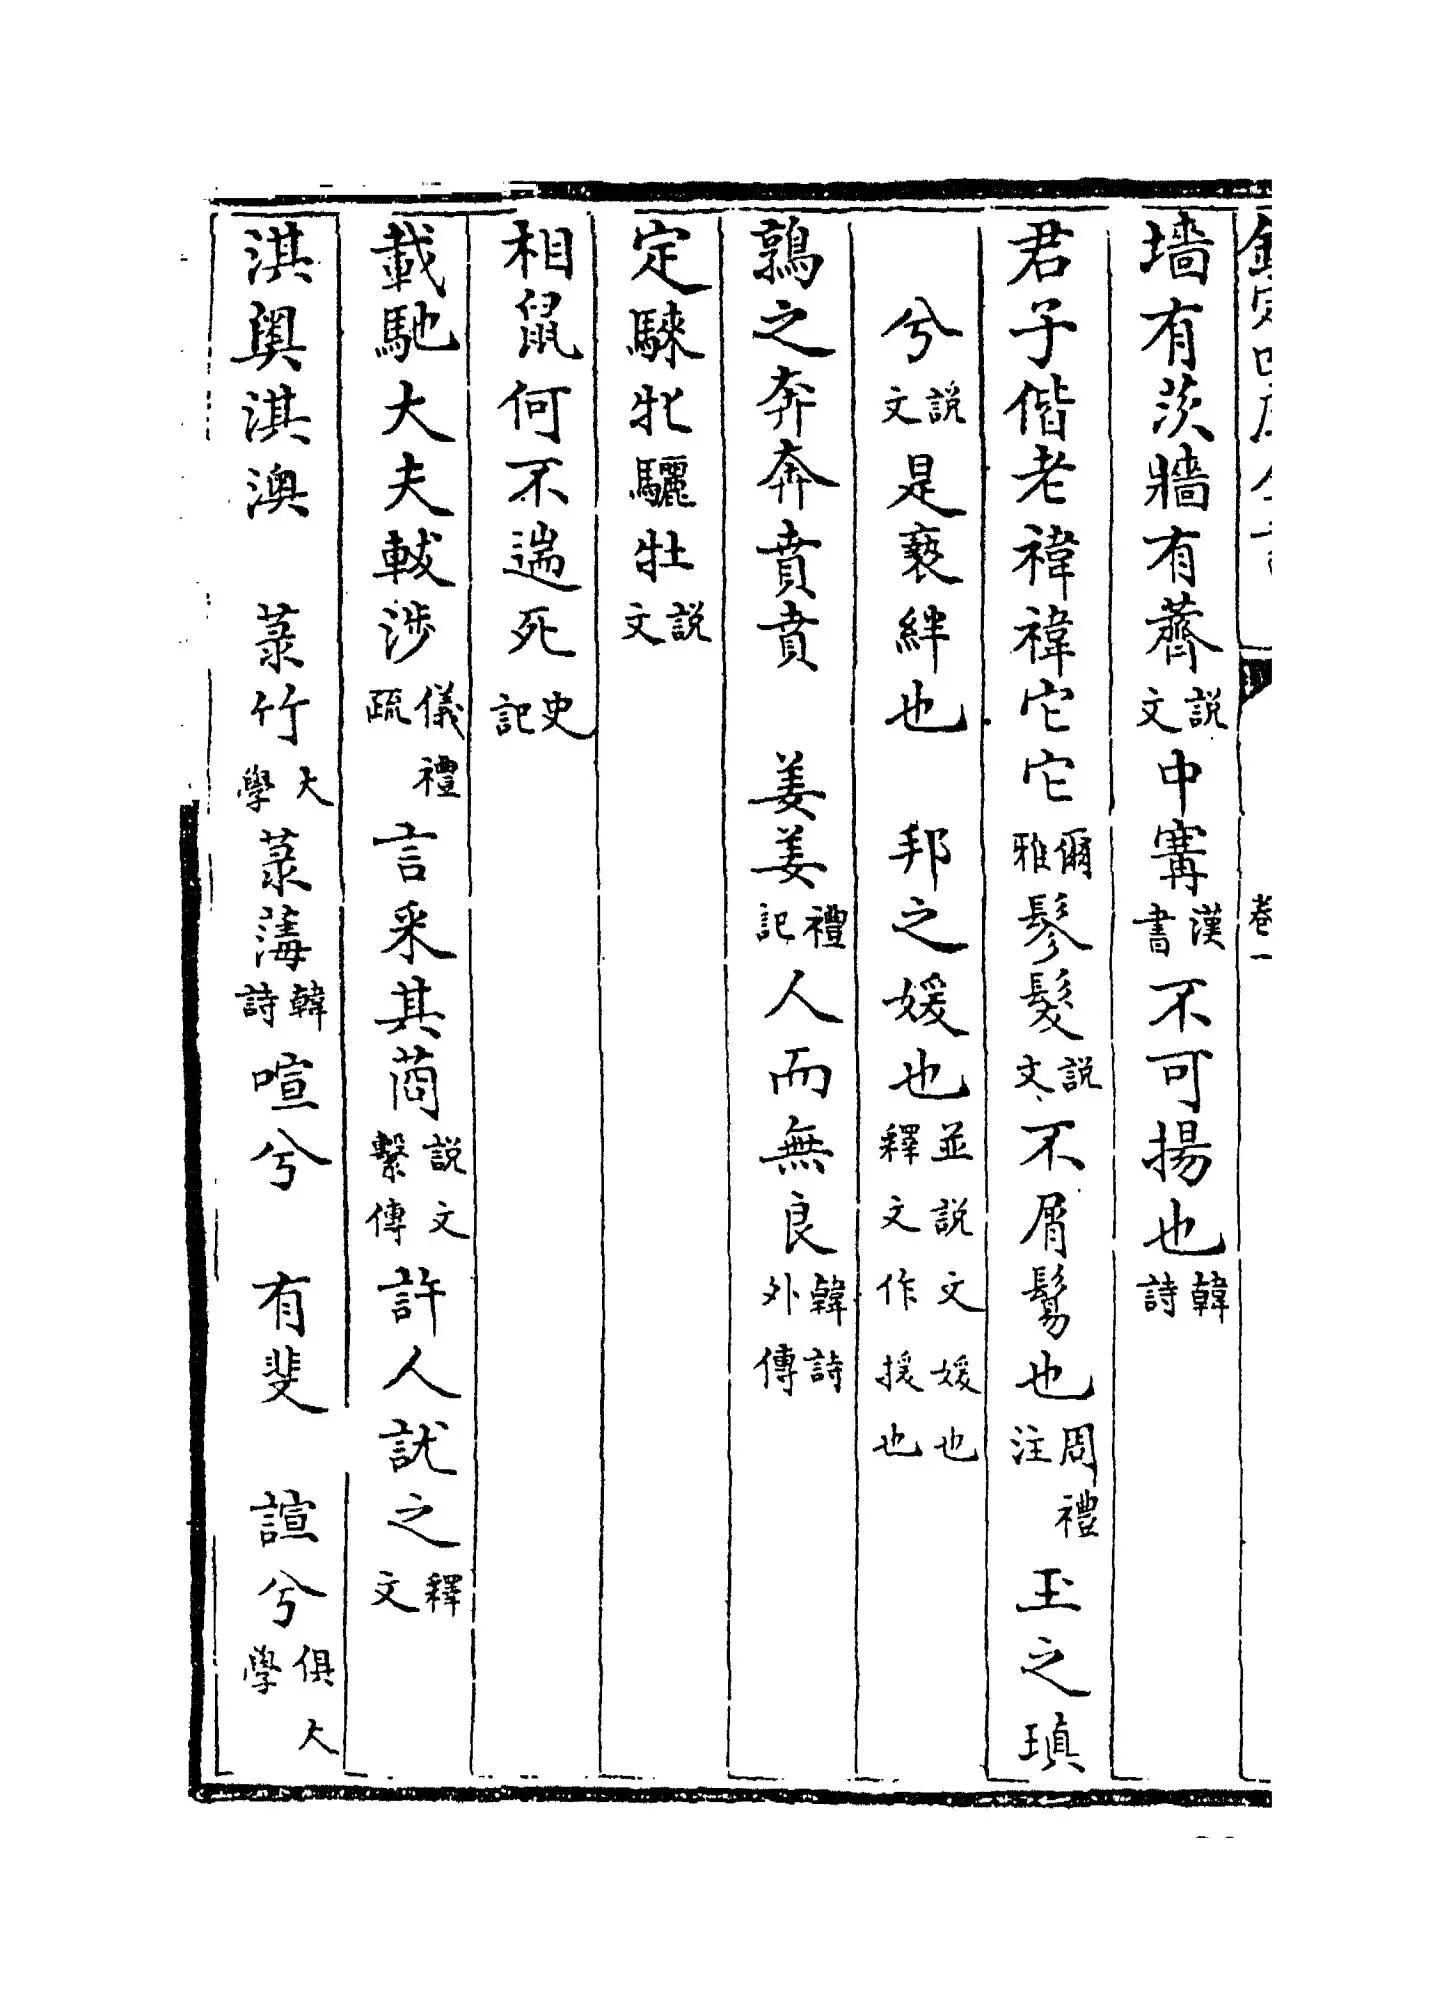 欽定四庫全書 卷一
墻有茨牆有薺說文中冓漢書不可揚也韓詩
君子偕老禕禕它它爾雅鬒髮說文不屑鬄也周禮注玉之瑱
兮說文是褻絆也 邦之媛也並說文媛也釋文作援也
鶉之奔奔賁賁 姜姜禮記人而無良韓詩外傳
定騋牝驪牡說文
相鼠何不遄死史記
載馳大夫軷涉儀禮疏言采其莔說文繫傳許人訧之釋文
淇奧淇澳 菉竹大學菉薄韓詩喧兮 有斐 諠兮俱大學